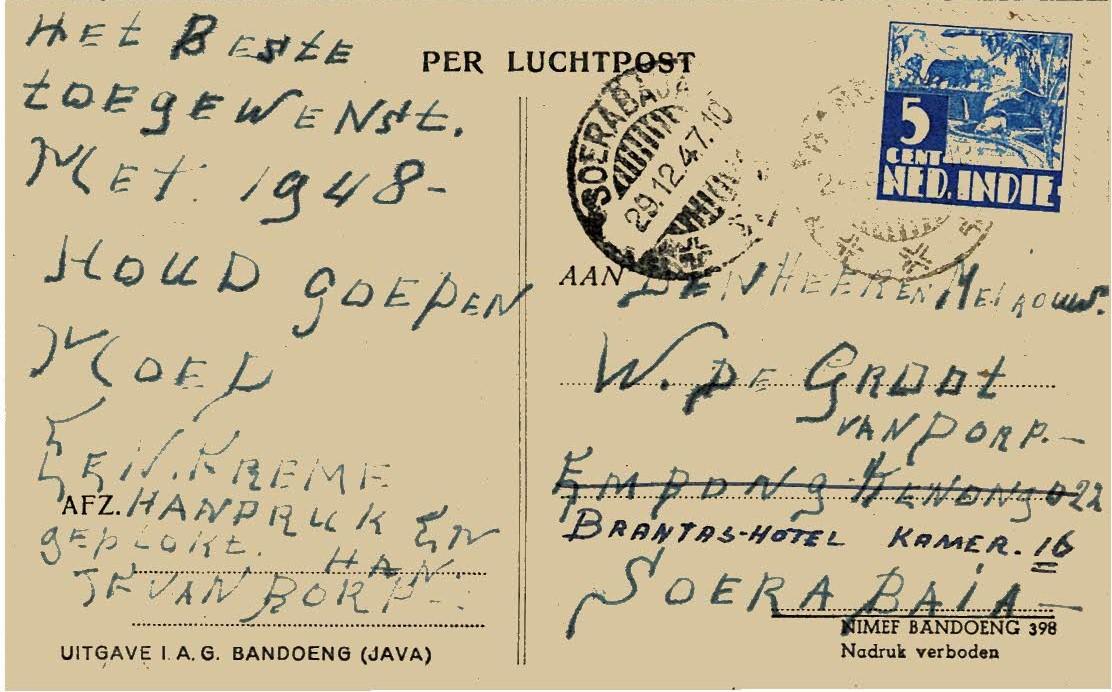 HET BESTE
TOEGEWENST.
MET 1948-
HOUD GOEDEN
MOED
EEN. KREME
AFZ. HANDRUK EN
gEDLOKT. HAN
JE VAN DORP-
UITGAVE I.A.G. BANDOENG (JAVA)
PER LUCHTPOST
SOERABAJA
29.12.47.10
5
CENT
NED. INDIE
AAN DEN HEER EN MEVROUW.
W. DE GROOT
VAN DORP.-
EMBONG KENONGO 22
BRANTAS-HOTEL KAMER. 16
SOERABAIA-
NIMEF BANDOENG 398
Nadruk verboden